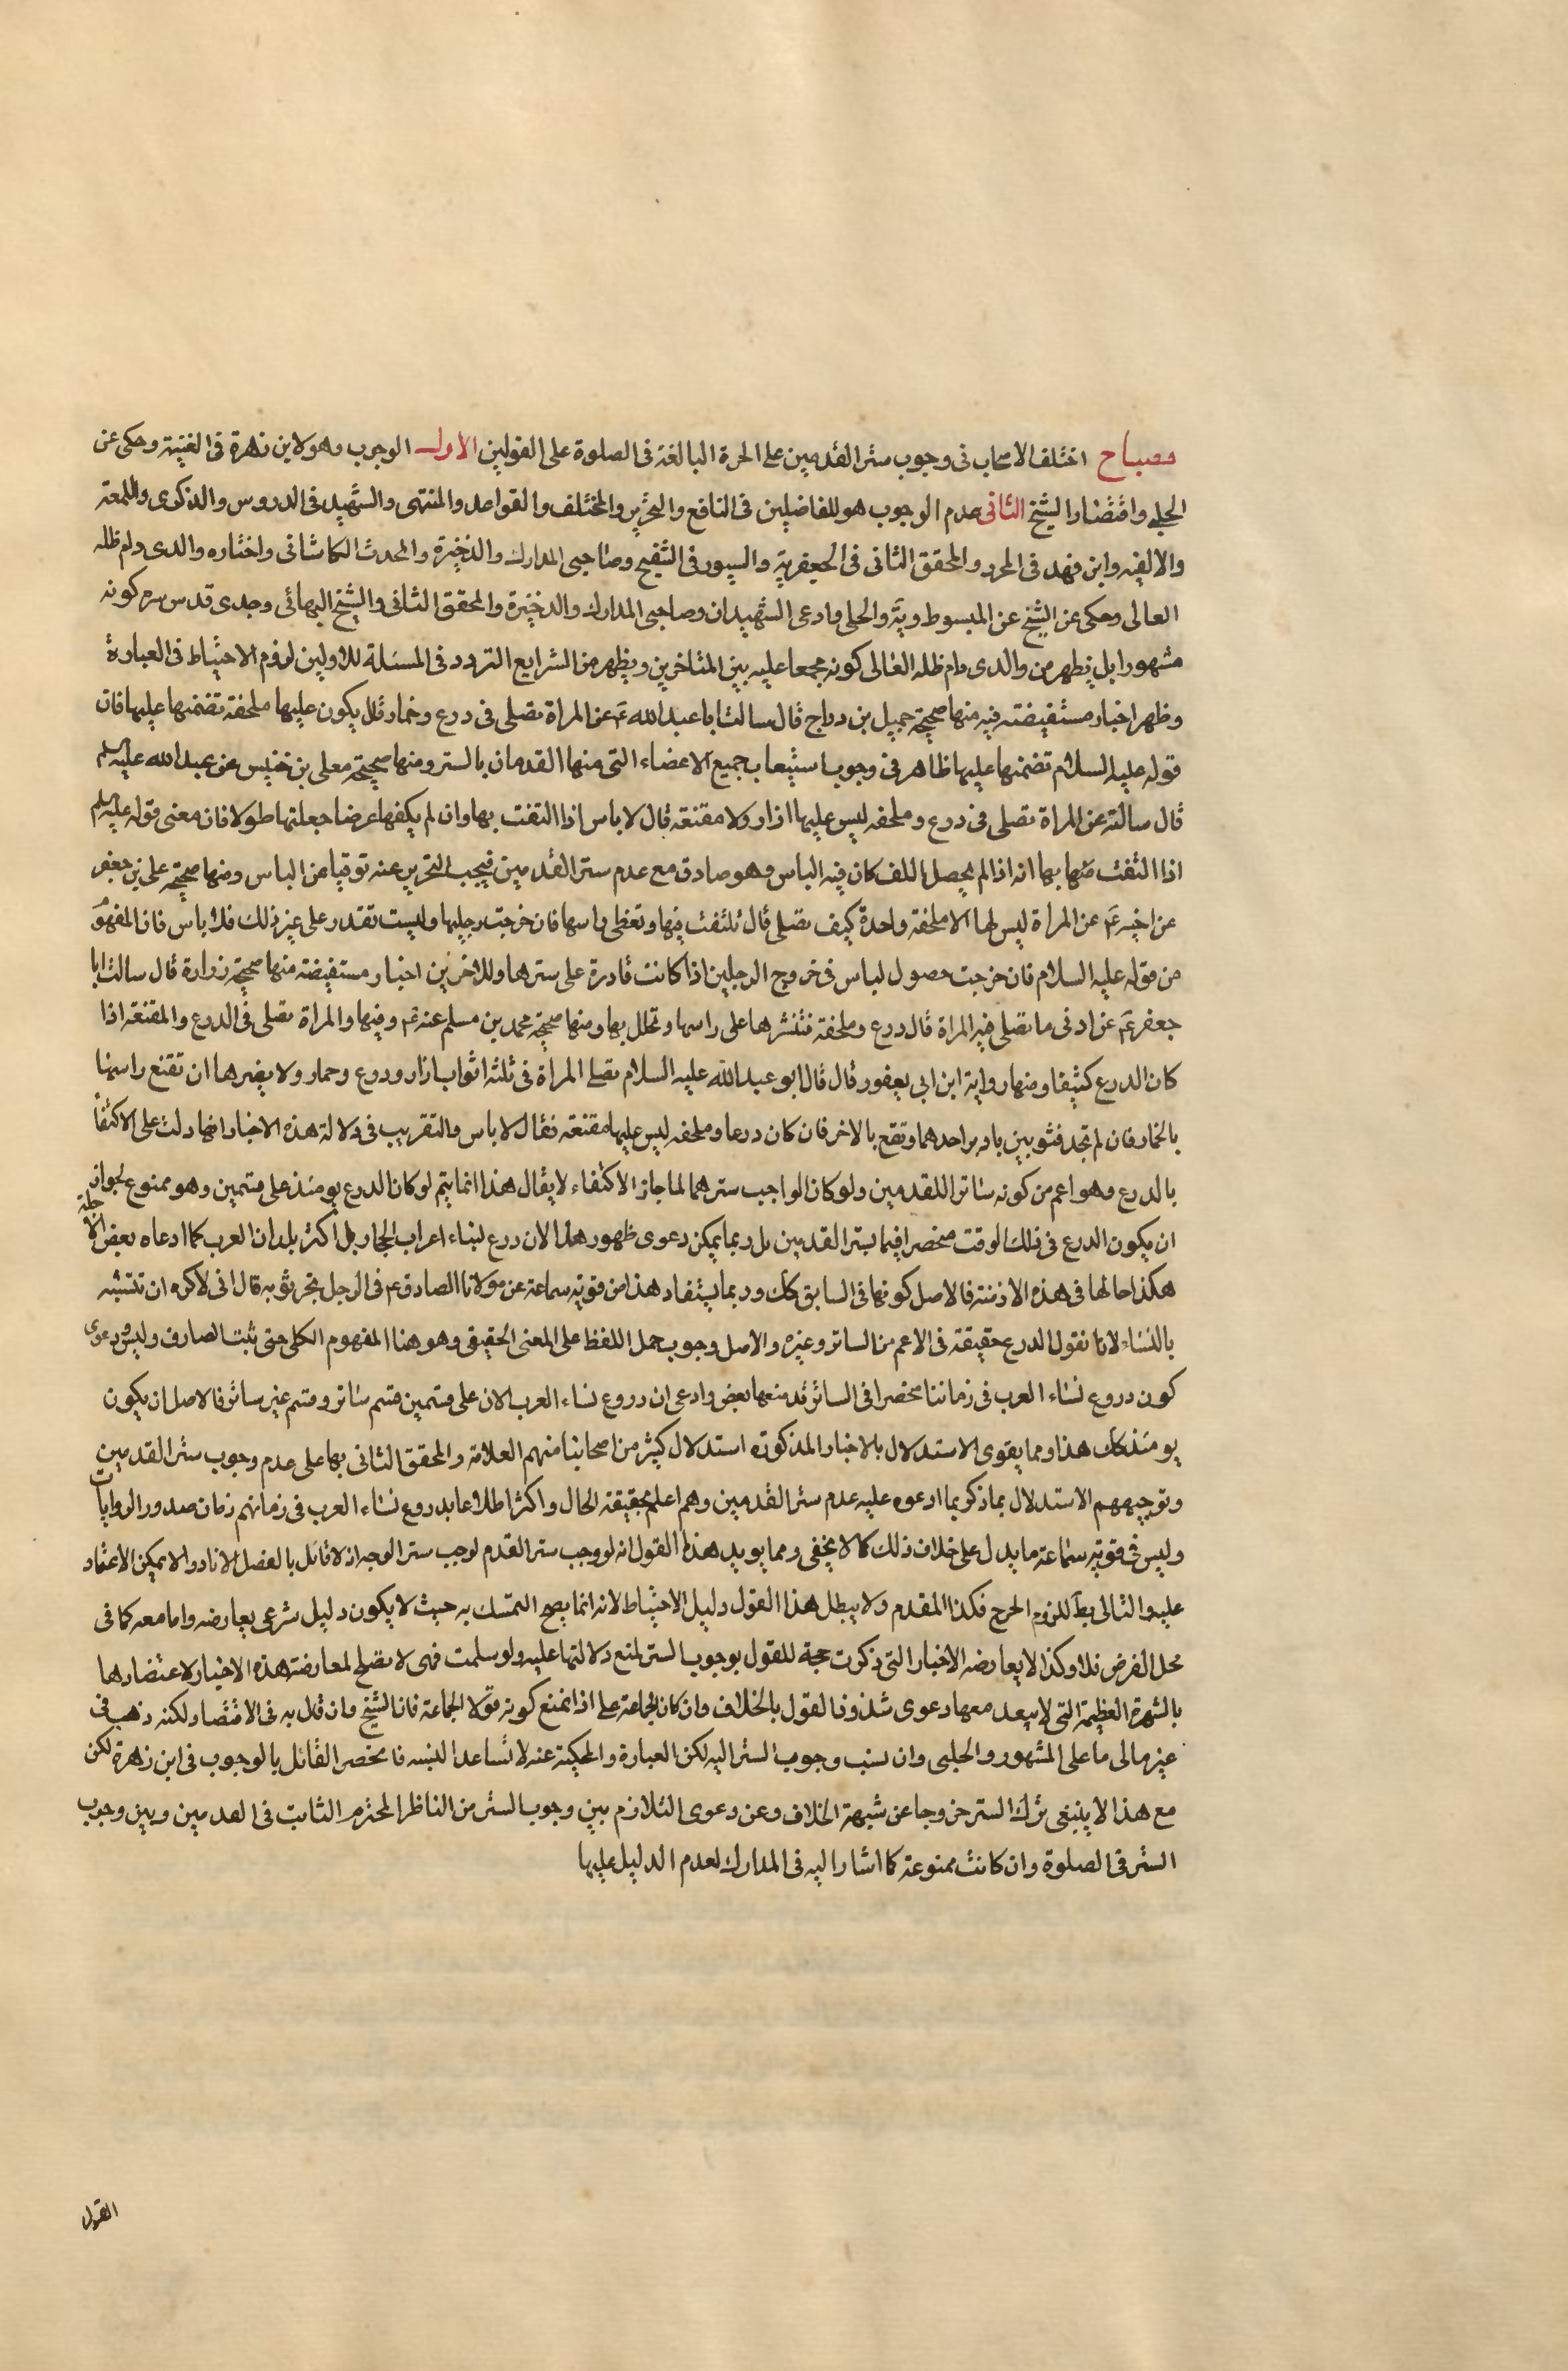 مصباح اختلف الاصحاب فى وجوب ستر القدمين على الحرة البالغة فى الصلوة على القولين الاول الوجوب وهو لابن زهرة فى الغنية وحكى عن
الحلبى واقتضار الشيخ الثانى عدم الوجوب هو للفاضلين فى النافع والتحرير والمختلف والقواعد والمنتهى والشهيد فى الدروس والذكرى واللمعة
والالفيه وابن فهد فى المحرر والمحقق الثانى فى الجعفرية والسيورى فى التنقيح وصاحبى المدارك والذخيرة والمحدث الكاشانى واختاره والدى دام ظله
العالى وحكى عن الشيخ عن المبسوط وية والحلى وادعى الشهيدان وصاحبى المدارك والذخيرة والمحقق الثانى والشيخ البهائى وجدى قدس سره كونه
مشهورا بل يظهر من والدى دام ظله العالى كونه مجمعا عليه بين المتاخرين ويظهر من الشرايع التردد فى المسئلة للاولين لزوم الاحتياط فى العبادة
وظهر اخبار مستفيضته فيه منها صحيحة جميل بن دراج قال سالت ابا عبد الله ع عن المراة تصلى فى درع وخمار قال يكون عليها ملحفة تضمنها عليها فان
قوله عليه السلام تضمنها عليها ظاهر فى وجوب استيعاب جميع الاعضاء التى منها القدمان بالستر ومنها صحيحة معلى بن خنيس عن عبد الله عليه السلم
قال سالته عن المراة تصلى فى درع وملحفه ليس عليها ازار ولا مقنعة قال لا باس اذا التفت بها وان لم يكفها عرضا جعلتها طولا فان معنى قوله عليه السلم
اذا التفت منها بها انه اذا لم يحصل اللف كان فيه الباس وهو صادق مع عدم ستر القدمين فيجب التحرير عنه توقيا من الباس ومنها صحيحة على بن جعفر
عن اخيه ع عن المراة ليس لها الا ملحفة واحدة كيف تصلى قال تلتفت فيها وتغطى راسها فان خرجت رجليها وليست تقدر على غير ذلك فلا باس فان المفهوم
من قوله عليه السلام فان خرجت حصول لباس فى خروج الرجلين اذا كانت قادرة على سترها وللاخرين اخبار مستفيضة منها صحيحة زرارة قال سالت ابا
جعفر ع عن ادنى ما تصلى فيه المراة قال درع وملحفة فتنشرها على راسها وتحلل بها ومنها صحيحة محمد بن مسلم عنه ع وفيها والمراة تصلى فى الدرع والمقنعة اذا
كان الدرع كثيفا ومنها رواية ابن ابى يعفور قال قال ابو عبد الله عليه السلام تصلى المراة فى ثلثه اثواب ازار ودرع وخمار ولا يضرها ان تقنع راسها
بالخمار فان لم تجد فثوبين ياتزر باحدهما وتقنع بالاخر فان كان درعا وملحفه ليس عليها مقنعة فقال لا باس والتقريب فى دلالة هذه الاخبار انها دلت على الاكتفا
بالدرع وهو اعم من كونه ساترا للقدمين ولو كان الواجب سترهما لما جاز الاكتفاء لا يقال هذا انما يتم لو كان الدرع يومئذ على قسمين وهو ممنوع لجواز
ان يكون الدرع فى ذلك الوقت منحصرا فيما يستر القدمين بل ربما يمكن دعوى ظهور هذا لان درع نساء اعراب الحجاز بل اكثر بلدان العرب كما ادعاه بعض الاجلة
هكذا حالها فى هذه الازمنة فالاصل كونها فى السابق كك وربما يستفاد هذا من قوية سماعة عن مولانا الصادق ع فى الرجل يجر ثوبه قال انى لاكره ان تتشبه
بالنساء لانا نقول الدرع حقيقة فى الاعم من الساتر وغيره والاصل وجوب حمل اللفظ على المعنى الحقيقى وهو هنا المفهوم الكلى حتى يثبت الصارف وليس دعوى
كون دروع نساء العرب فى زماننا منحصرا فى الساتر قد منعها بعض وادعى ان دروع نساء العرب الان على قسمين قسم ساتر وقسم غير ساتر فالاصل ان يكون
يومئذ كك هذا ومما يقوى الاستدلال بالاخبار المذكورة استدلال كثير من اصحابنا منهم العلامة والمحقق الثانى بها على عدم وجوب ستر القدمين
وتوجيههم الاستدلال بما ذكر بما ادعوه عليه عدم ستر القدمين وهم اعلم بحقيقة الحال واكثر اطلاعا بدروع نساء العرب فى زمانهم زمان صدور الروايات
وليس فى قوية سماعة ما يدل على خلاف ذلك كما لا يخفى ومما يويد هذا القول انه لو وجب ستر القدم لوجب ستر الوجه اذ لا قائل بالفصل الا نادرا لا يمكن الاعتماد
عليه والتالى بط للزوم الحرج فكذا المقدم ولا يبطل هذا القول دليل الاحتياط لانه انما يصح التمسك به حيث لا يكون دليل شرعى يعارضه واما معه كما فى
محل الفرض فلا وكذا لا يعارضه الاخبار التى ذكرت حجة للقول بوجوب الستر لمنع دلالتها عليه ولو سلمت فهى لا تصلح لمعارضة هذه الاخبار لاعتضادها
بالشهرة العظيمة التى لا يبعد معها دعوى شذوذ القول بالخلاف وان كان لجماعة على اذا نمنع كونه قولا لجماعة فان الشيخ وان قال به فى الاقتصاد لكنه ذهب فى
غيره الى ما على المشهور والحلبى وان نسب وجوب الستر اليه لكن العبارة والمحكية عنه لا تساعد النسبه فانحصر القائل بالوجوب فى ابن زهرة لكن
مع هذا لا ينبغى ترك الستر خروجا عن شبهة الخلاف وعن دعوى التلازم بين وجوب الستر من الناظر المحترم الثابت فى القدمين وبين وجوب
الستر فى الصلوة وان كانت ممنوعة كما اشار اليه فى المدارك لعدم الدليل عليها
القول